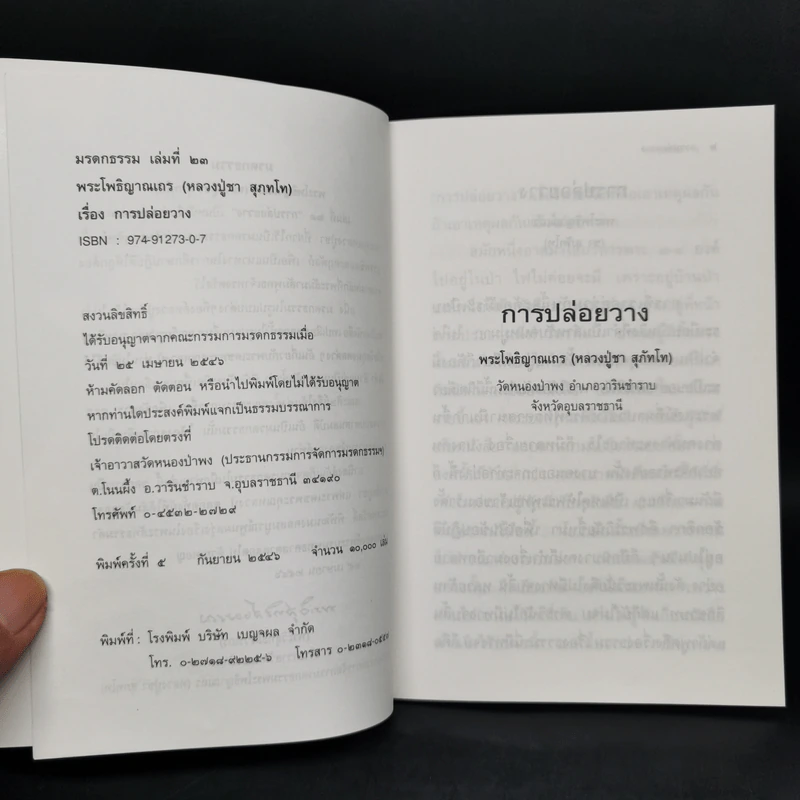 มรดกธรรม เล่มที่ ๒๓
พระโพธิญาณเถร (หลวงปู่ชา สุภทฺโท)
เรื่อง การปล่อยวาง
ISBN : 974-91273-0-7
สงวนลิขสิทธิ์
ได้รับอนุญาตจากคณะกรรมการมรดกธรรมเมื่อ
วันที่ ๒๕ เมษายน ๒๕๔๖
ห้ามคัดลอก ตัดตอน หรือนำไปพิมพ์โดยไม่ได้รับอนุญาต
หากท่านใดประสงค์พิมพ์แจกเป็นธรรมบรรณาการ
โปรดติดต่อโดยตรงที่
เจ้าอาวาสวัดหนองป่าพง (ประธานกรรมการจัดการมรดกธรรมฯ)
ต.โนนผึ้ง อ.วารินชำราบ จ.อุบลราชธานี ๓๔๑๙๐
โทรศัพท์ ๐-๔๕๓๒-๒๗๒๙
พิมพ์ครั้งที่ ๕ กันยายน ๒๕๔๖ จำนวน ๑๐,๐๐๐ เล่ม
พิมพ์ที่ : โรงพิมพ์ บริษัท เบญจผล จำกัด
โทร. ๐-๒๗๑๘-๙๒๒๕-๖ โทรสาร
การปล่อยวาง
พระโพธิญาณเถร (หลวงปู่ชา สุภัทโท)
วัดหนองป่าพง อำเภอวารินชำราบ
จังหวัดอุบลราชธานี